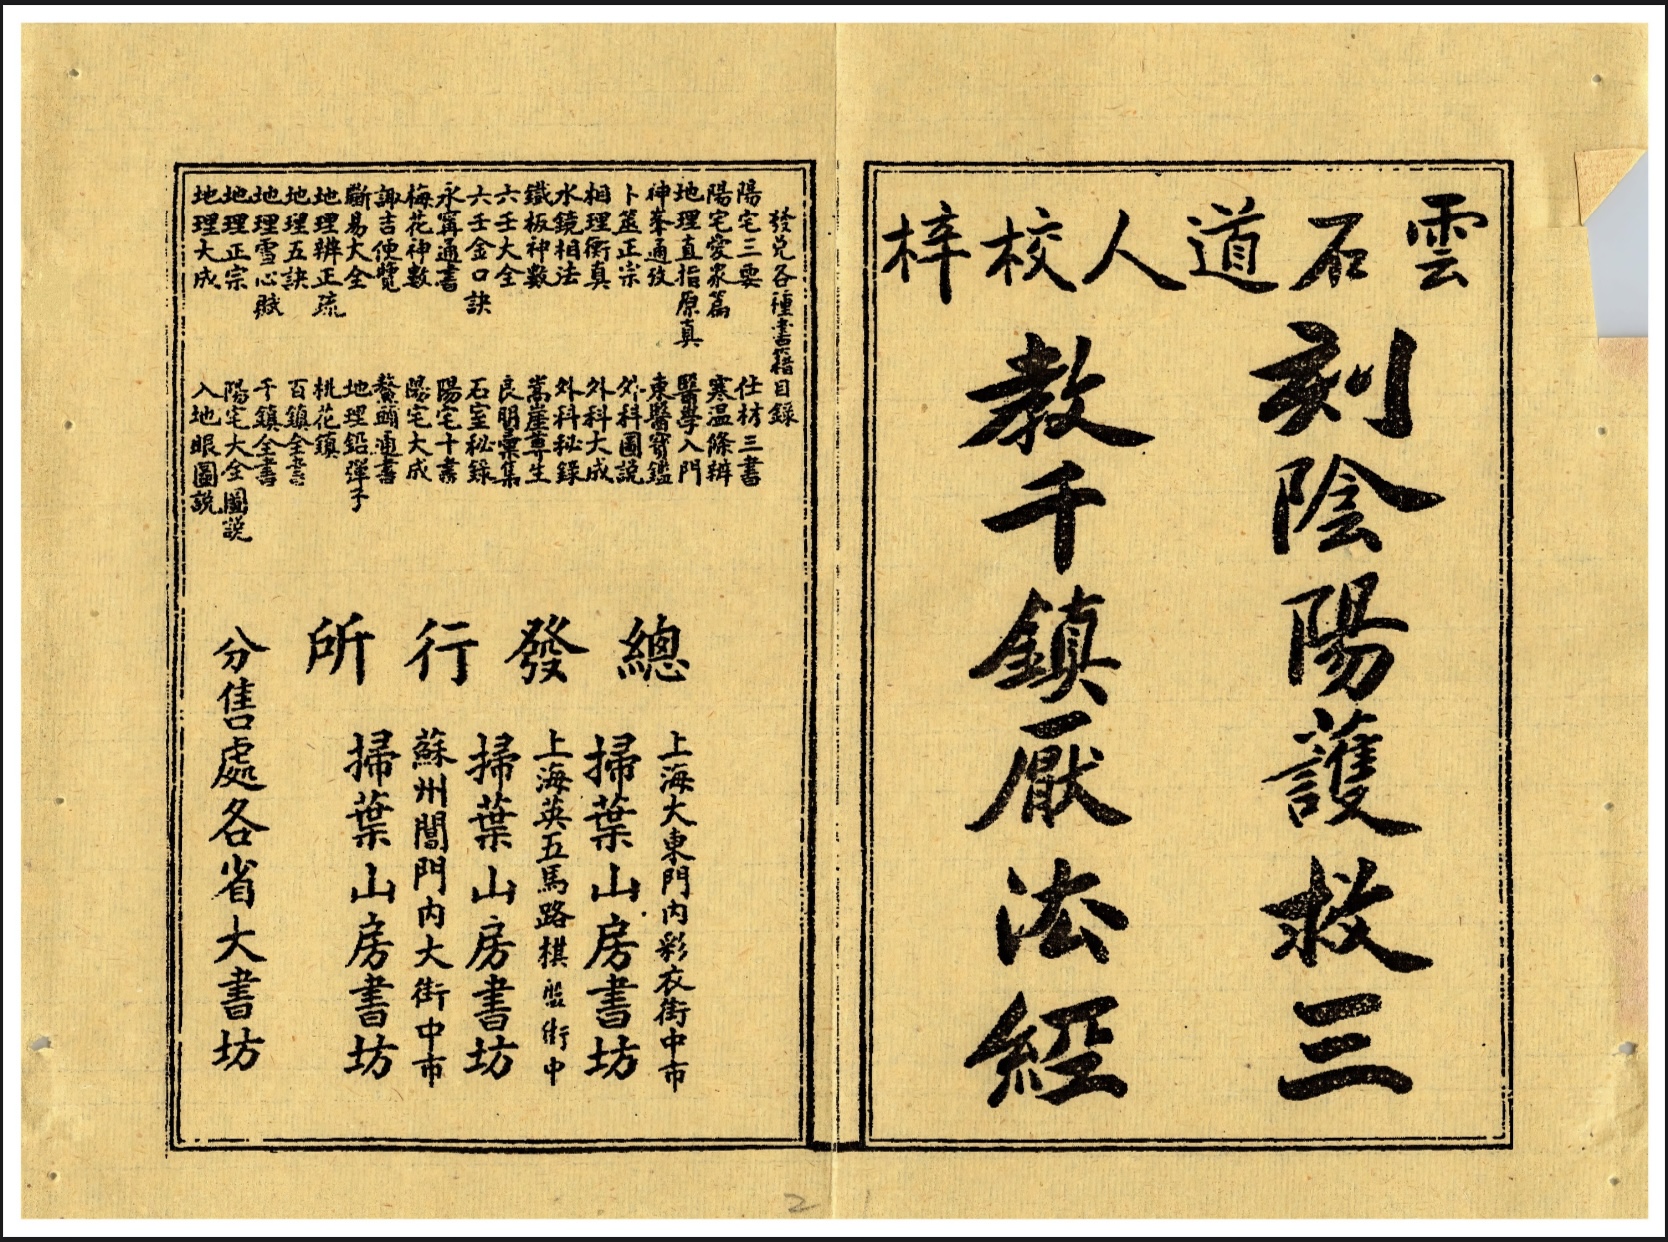 雲石道人校梓
刻陰陽護救三
教千鎮厭法經
發兌各種書籍目錄
陽宅三要
陽宅愛衆篇
地理直指原真
神峯通攷
卜筮正宗
相理衡真
水鏡相法
鐵板神數
六壬大全
六壬金口訣
永寧通書
梅花神數
諏吉便覽
斷易大全
地理辨正疏
地理五訣
地理雪心賦
地理正宗
地理大成
仕材三書
寒温條辨
醫學入門
東醫寶鑑
外科圖説
外科大成
外科秘錄
嵩崖尊生
良朋彙集
石室秘錄
陽宅十書
陽宅大成
鰲頭通書
地理鉛彈子
桃花鎮
百鎮全書
千鎮全書
陽宅大全圖説
入地眼圖説
總發行所
上海大東門內彩衣街中市
掃葉山房書坊
上海英五馬路棋盤街中
掃葉山房書坊
蘇州閶門內大街中市
掃葉山房書坊
分售處各省大書坊
2